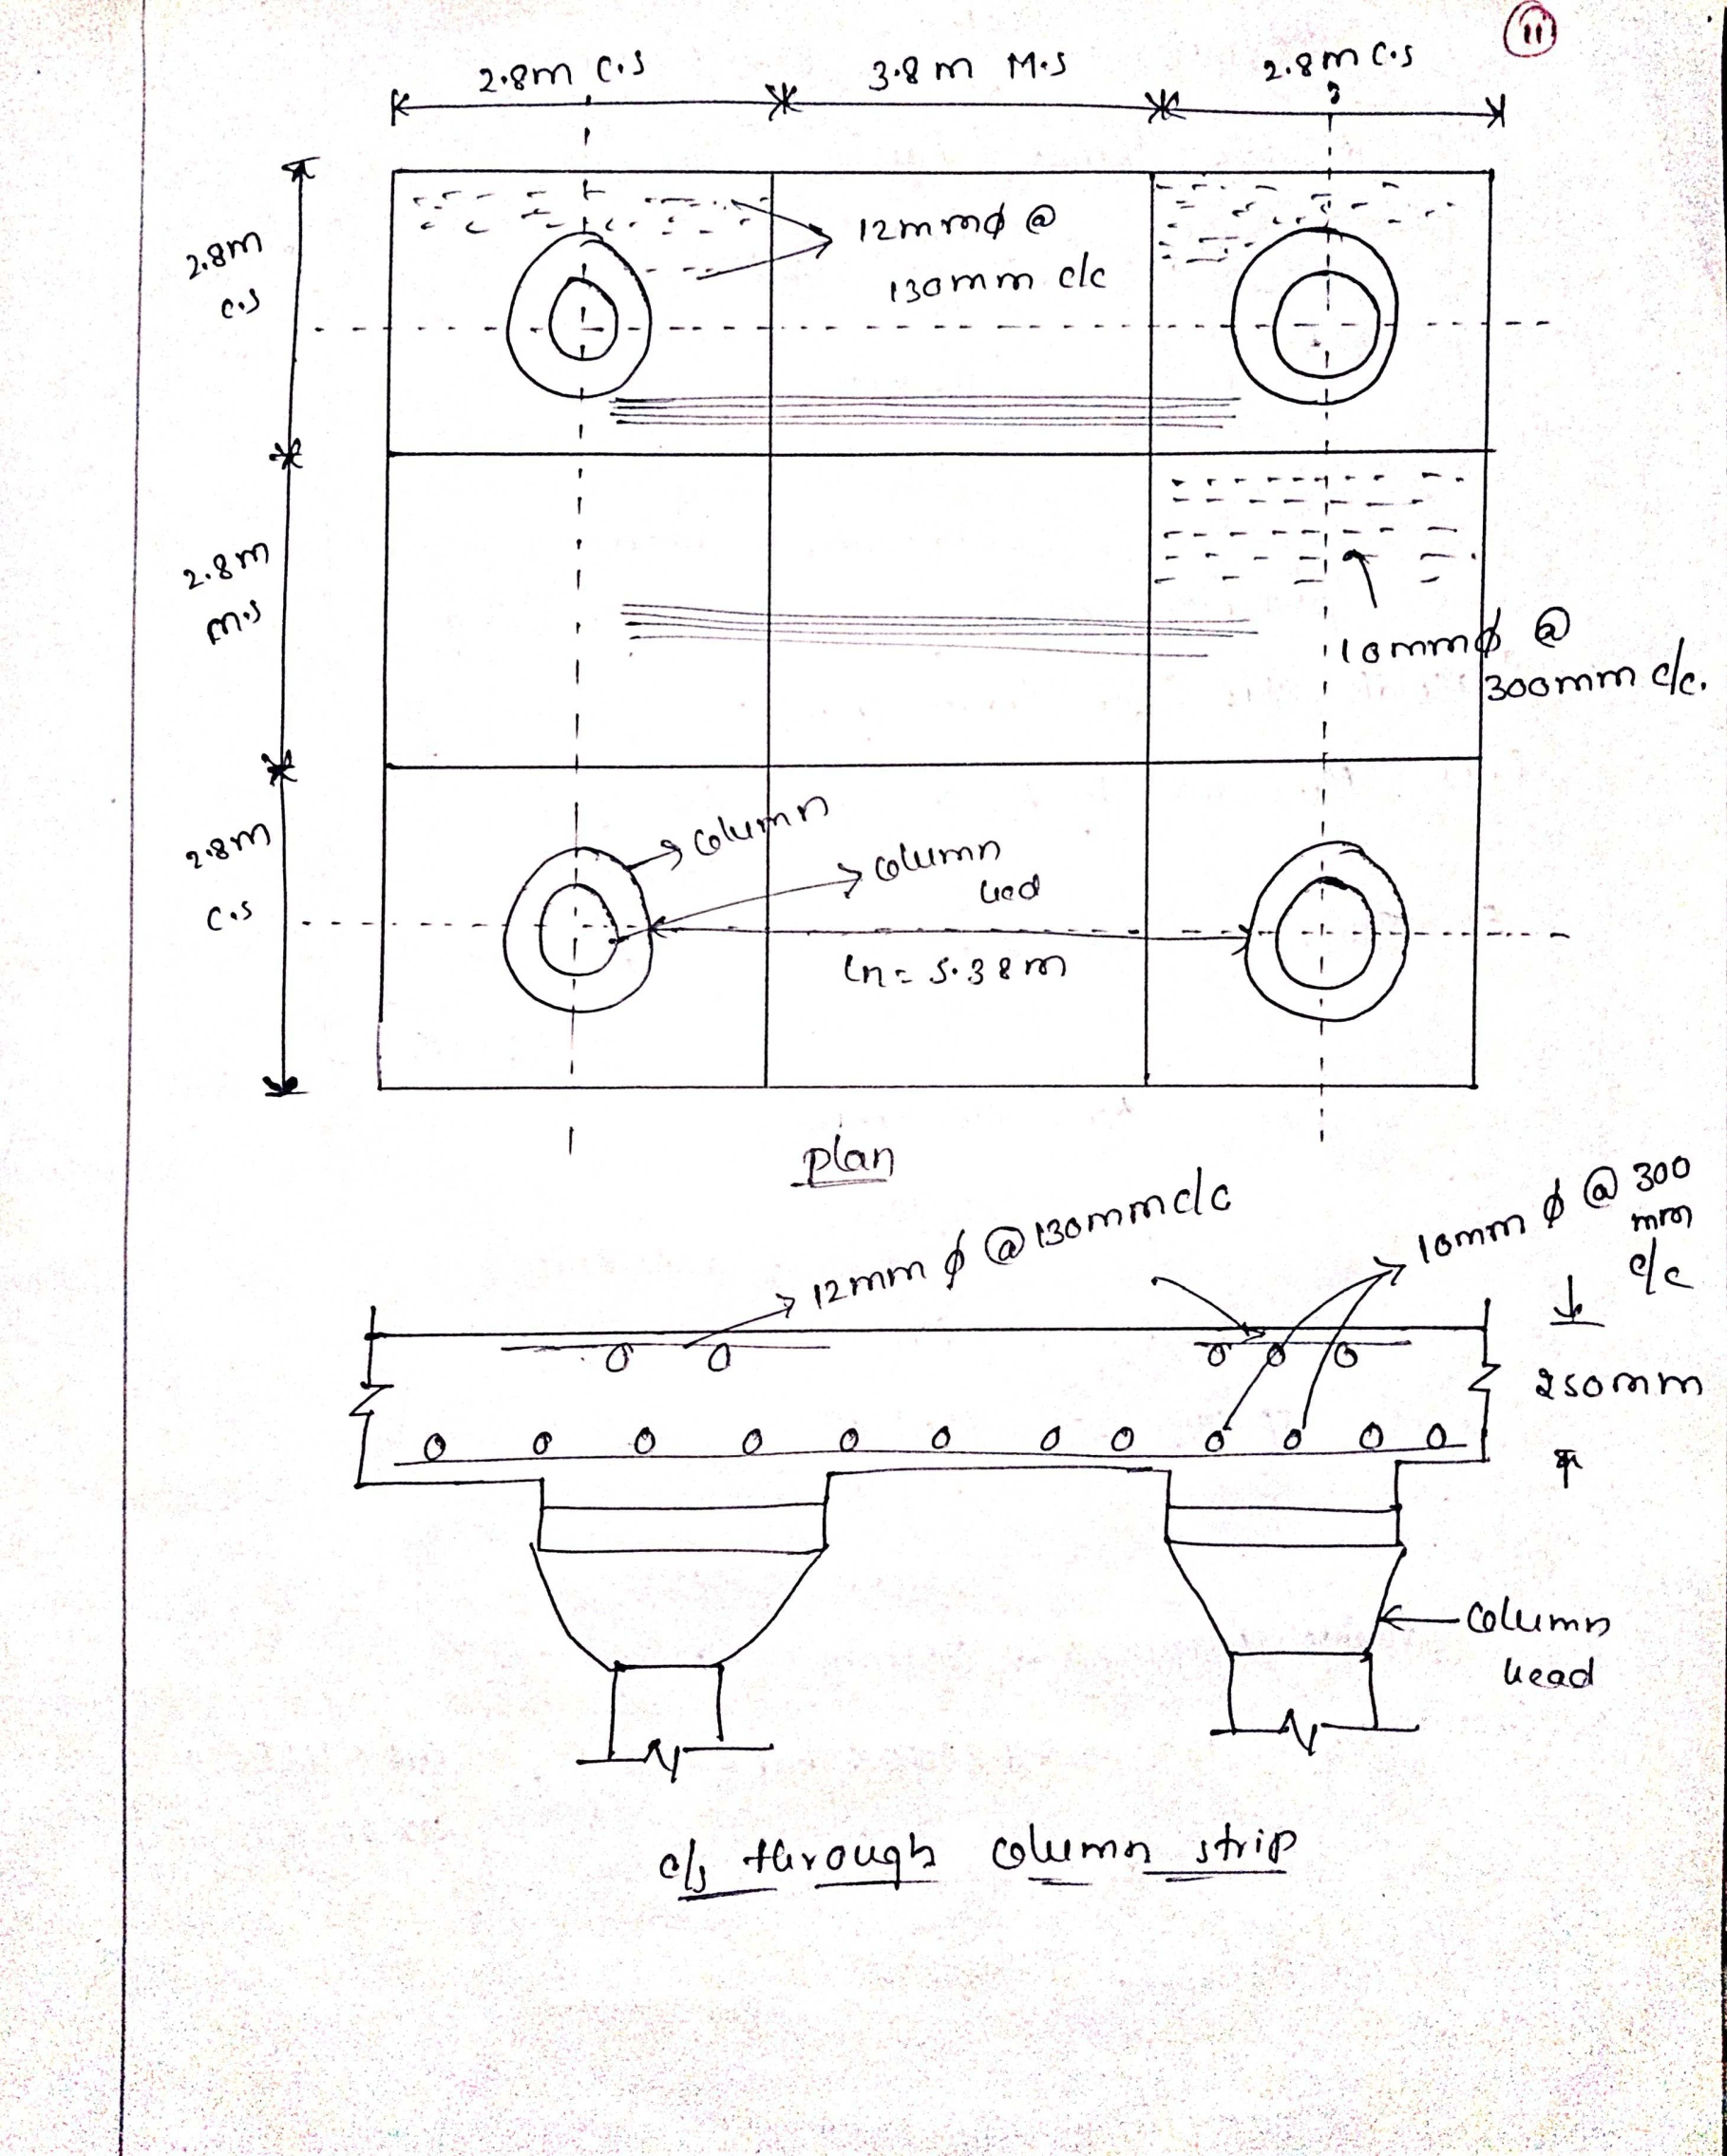 11
2.8m C.S
3.8m M.S
2.8m C.S
2.8m
C.S
12mmϕ @
130mm c/c
2.8m
M.S
10mmϕ @
300mm c/c.
2.8m
C.S
column
column
head
ln = 5.38m
plan
12mm ϕ @ 130mm c/c
10mm ϕ @ 300
mm
c/c
250mm
column
head
c/s through column strip